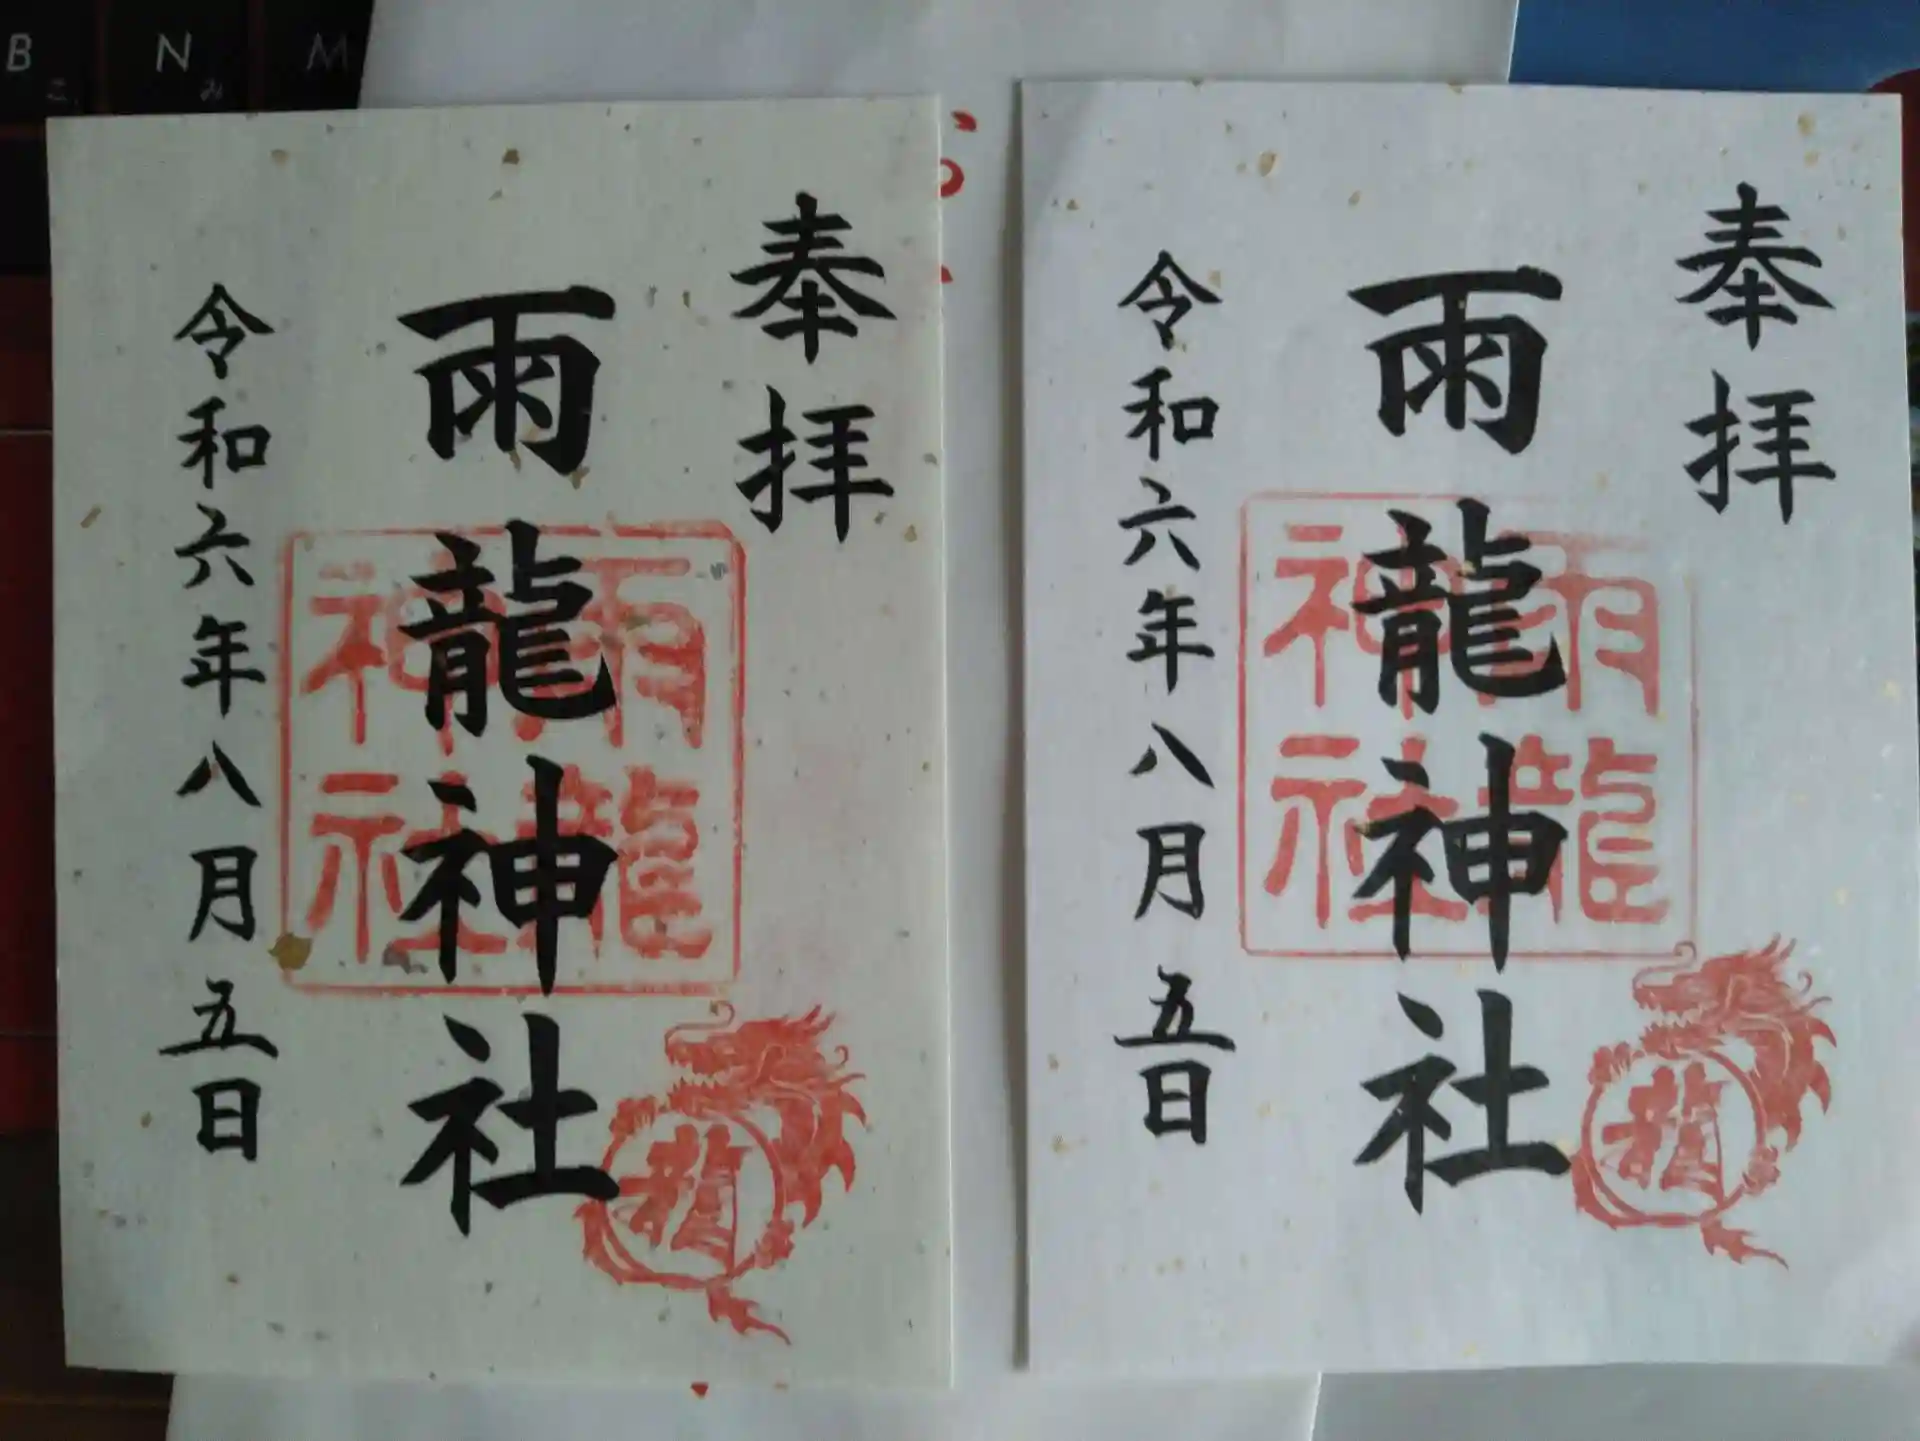 B
こ
N
み
M
奉拝
雨龍神社
令和六年八月五日
雨龍
神社
龍
奉拝
雨龍神社
令和六年八月五日
雨龍
神社
龍